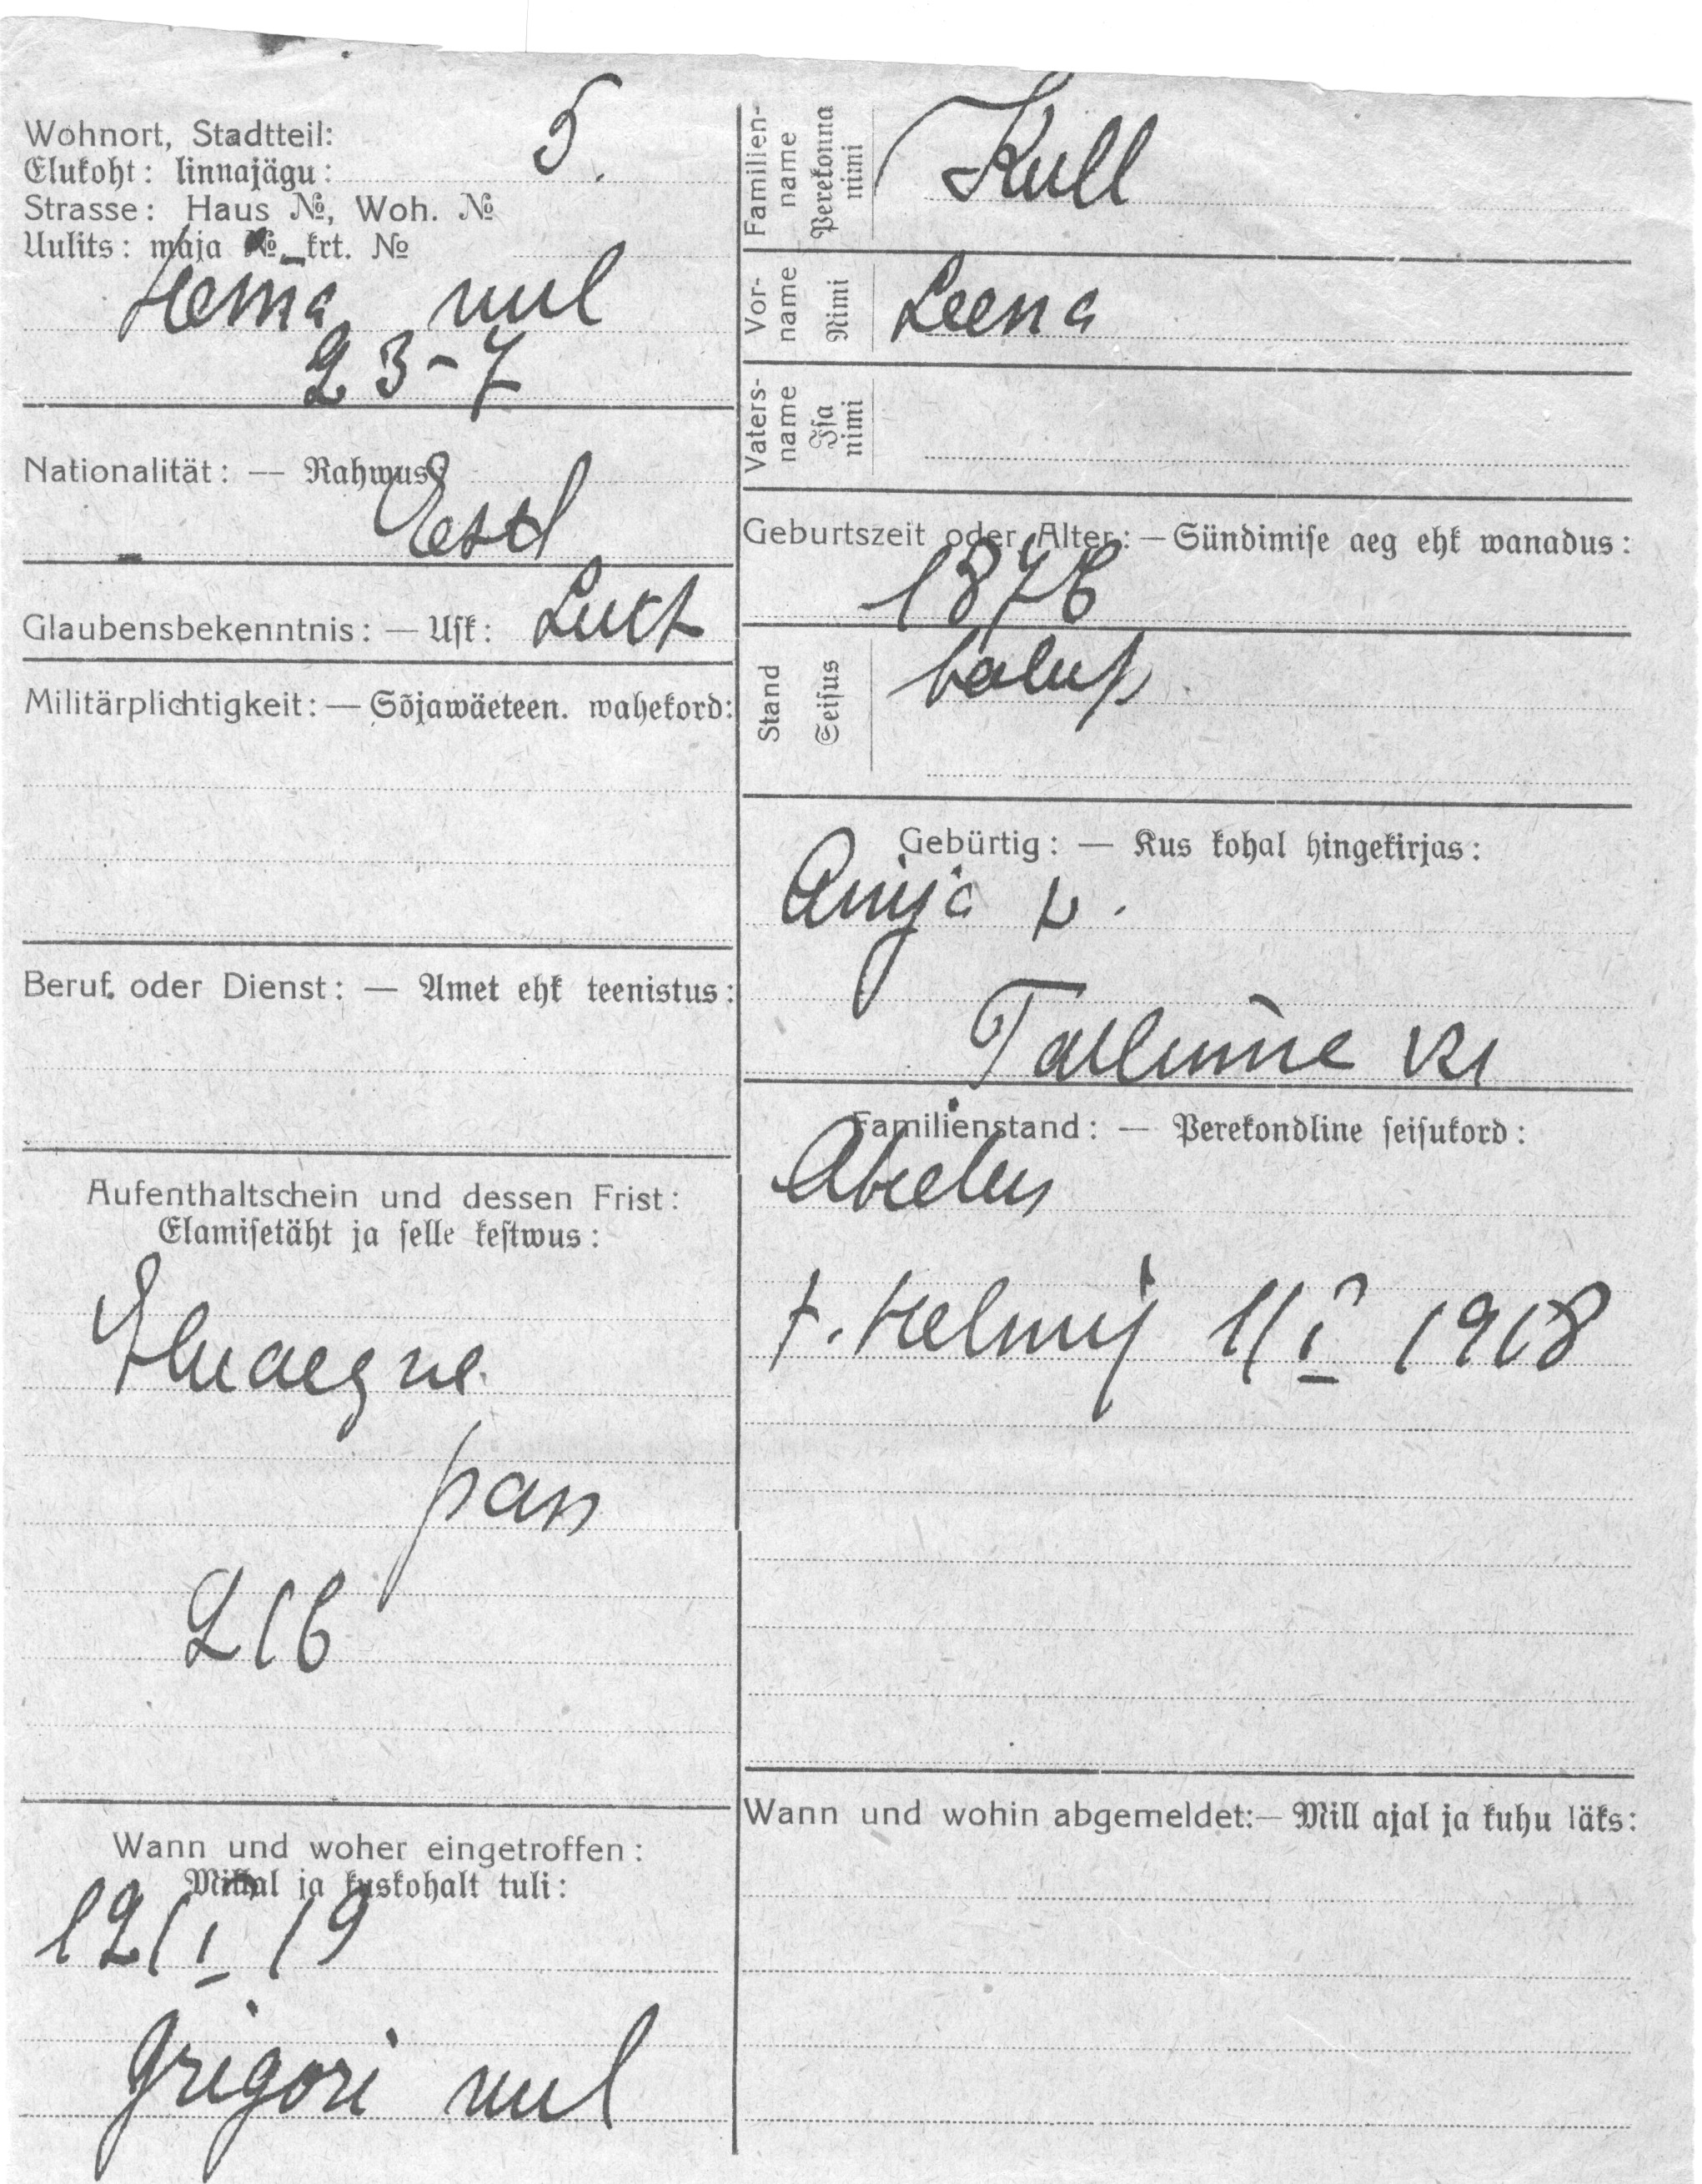 Wohnort, Stadtteil:
Elukoht: linnajägu: 5.
Strasse: Haus №, Woh. №
Uulits: maja № krt. №
Herna uul
23-7
Nationalität: — Rahwus:
Eestl
Glaubensbekenntnis: — Usk: Lut
Militärplichtigkeit: — Sõjawäeteen. wahekord:
Beruf oder Dienst: — Amet ehk teenistus:
Aufenthaltschein und dessen Frist:
Elamisetäht ja selle kestwus:
Eluaegne
pass
216
Wann und woher eingetroffen:
Mil ajal ja kuskohalt tuli:
12/I 19
Grigori uul
Familien-
name
Perekonna
nimi
Kull
Vor-
name
Nimi
Leena
Vaters-
name
Isa
nimi
Geburtszeit oder Alter: — Sündimise aeg ehk wanadus:
1876
Stand
Seisus
talup
Gebürtig: — Kus kohal hingekirjas:
Anija v.
Tallinna kr
Familienstand: — Perekondline seisukord:
Abielus
t. Helmi 1/I 1918
Wann und wohin abgemeldet: — Mill ajal ja kuhu läks: